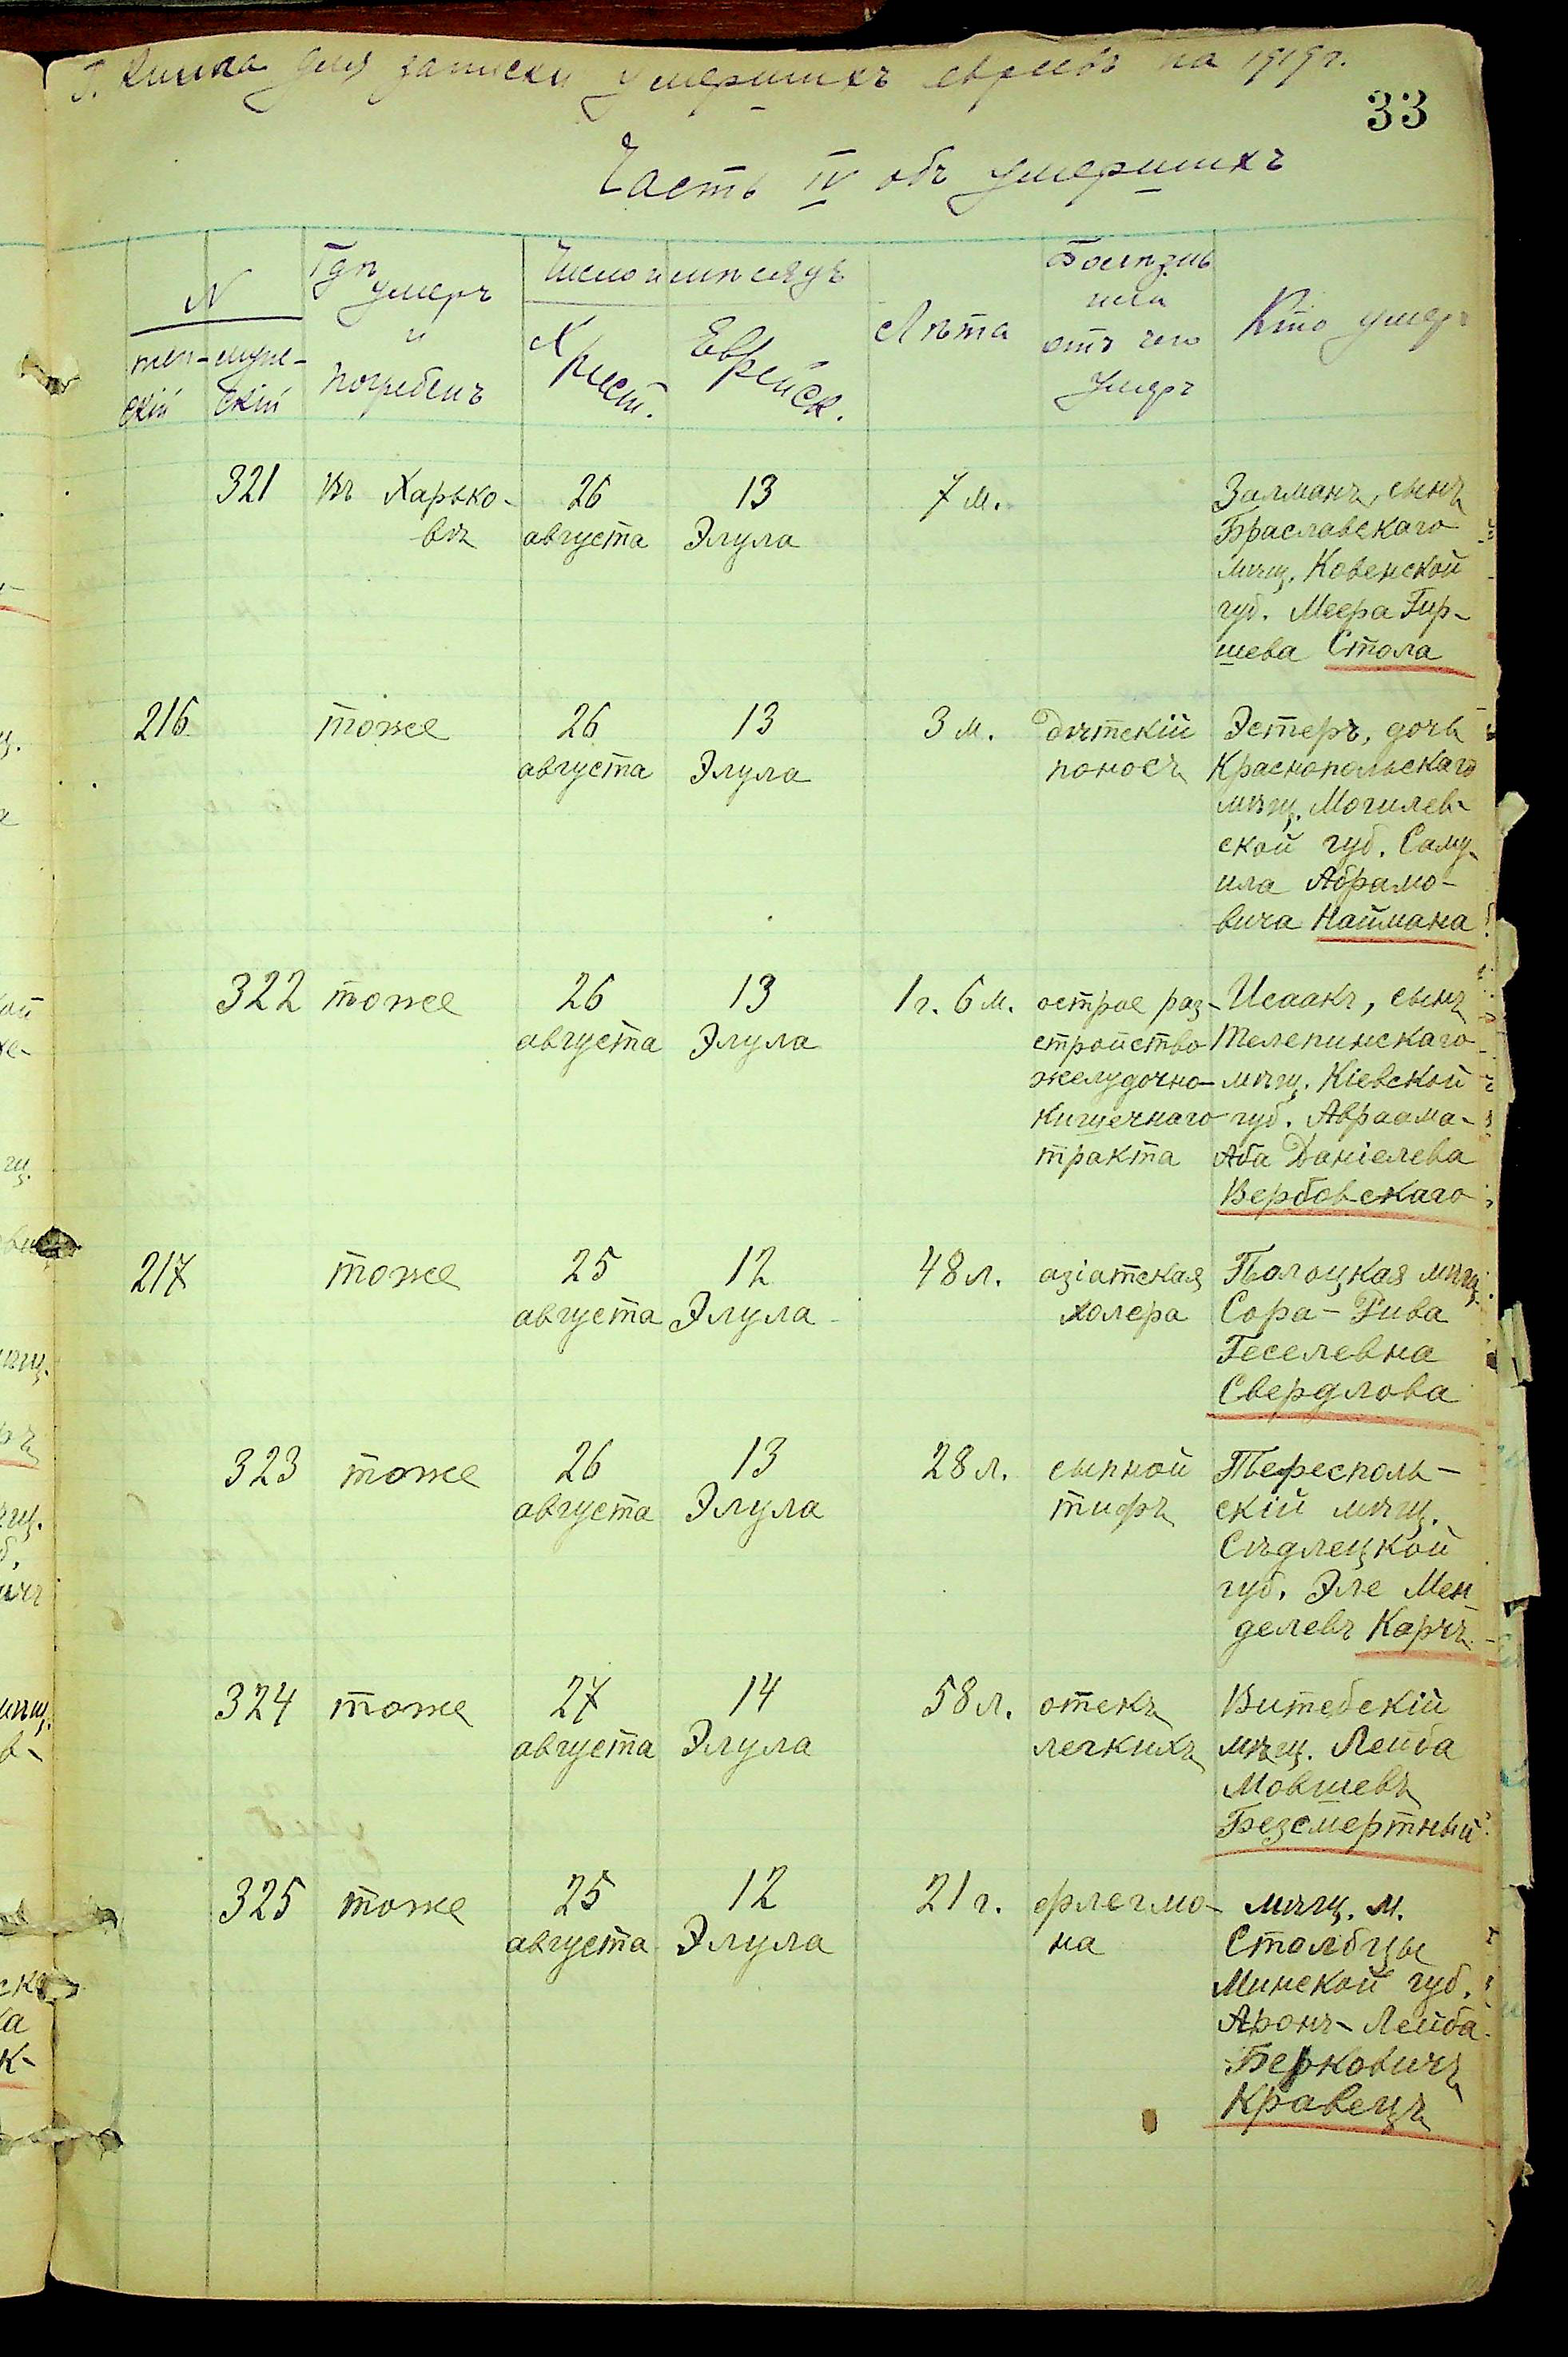 Книга для записки умершихъ евреевъ на 1919 г.
33
Часть IV объ умершихъ
N
жен-скій
муже-скій
Гдѣ умеръ и погребенъ
Число и мѣсяцъ
Христ.
Еврейск.
Лѣта
Болѣзнь или отъ чего умеръ
Кто умеръ
321 Въ Харько- 26 13 7 м. Залманъ, сынъ
вѣ августа Элула Браславскаго
мѣщ. Ковенской
губ. Меера Гир-
шева Стола
216 тоже 26 13 3 м. Дѣтскій Эстеръ, дочь
августа Элула поносъ Краснопольскаго
мѣщ. Могилев-
ской губ. Саму-
ила Абрамо-
вича Наймана
322 тоже 26 13 1 г. 6 м. острое раз- Исаакъ, сынъ
августа Элула стройство Телепинскаго
желудочно- мѣщ. Кіевской
кишечнаго губ. Авраама-
тракта Аба Даніелева
Вербовскаго
217 тоже 25 12 48 л. азіатская Полоцкая мѣщ.
августа Элула холера Сора-Рива
Геселевна
Свердлова
323 тоже 26 13 28 л. сыпной Тересполь-
августа Элула тифъ скій мѣщ.
Сѣдлецкой
губ. Эле Мен-
делевъ Корнъ
324 тоже 27 14 58 л. отекъ Витебскій
августа Элула легкихъ мѣщ. Лейба
Мовшевъ
Безсмертный
325 тоже 25 12 21 г. флегмо- мѣщ. м.
августа Элула на Столбцы
Минской губ.
Аронъ-Лейба
Берковичъ
Кравецъ